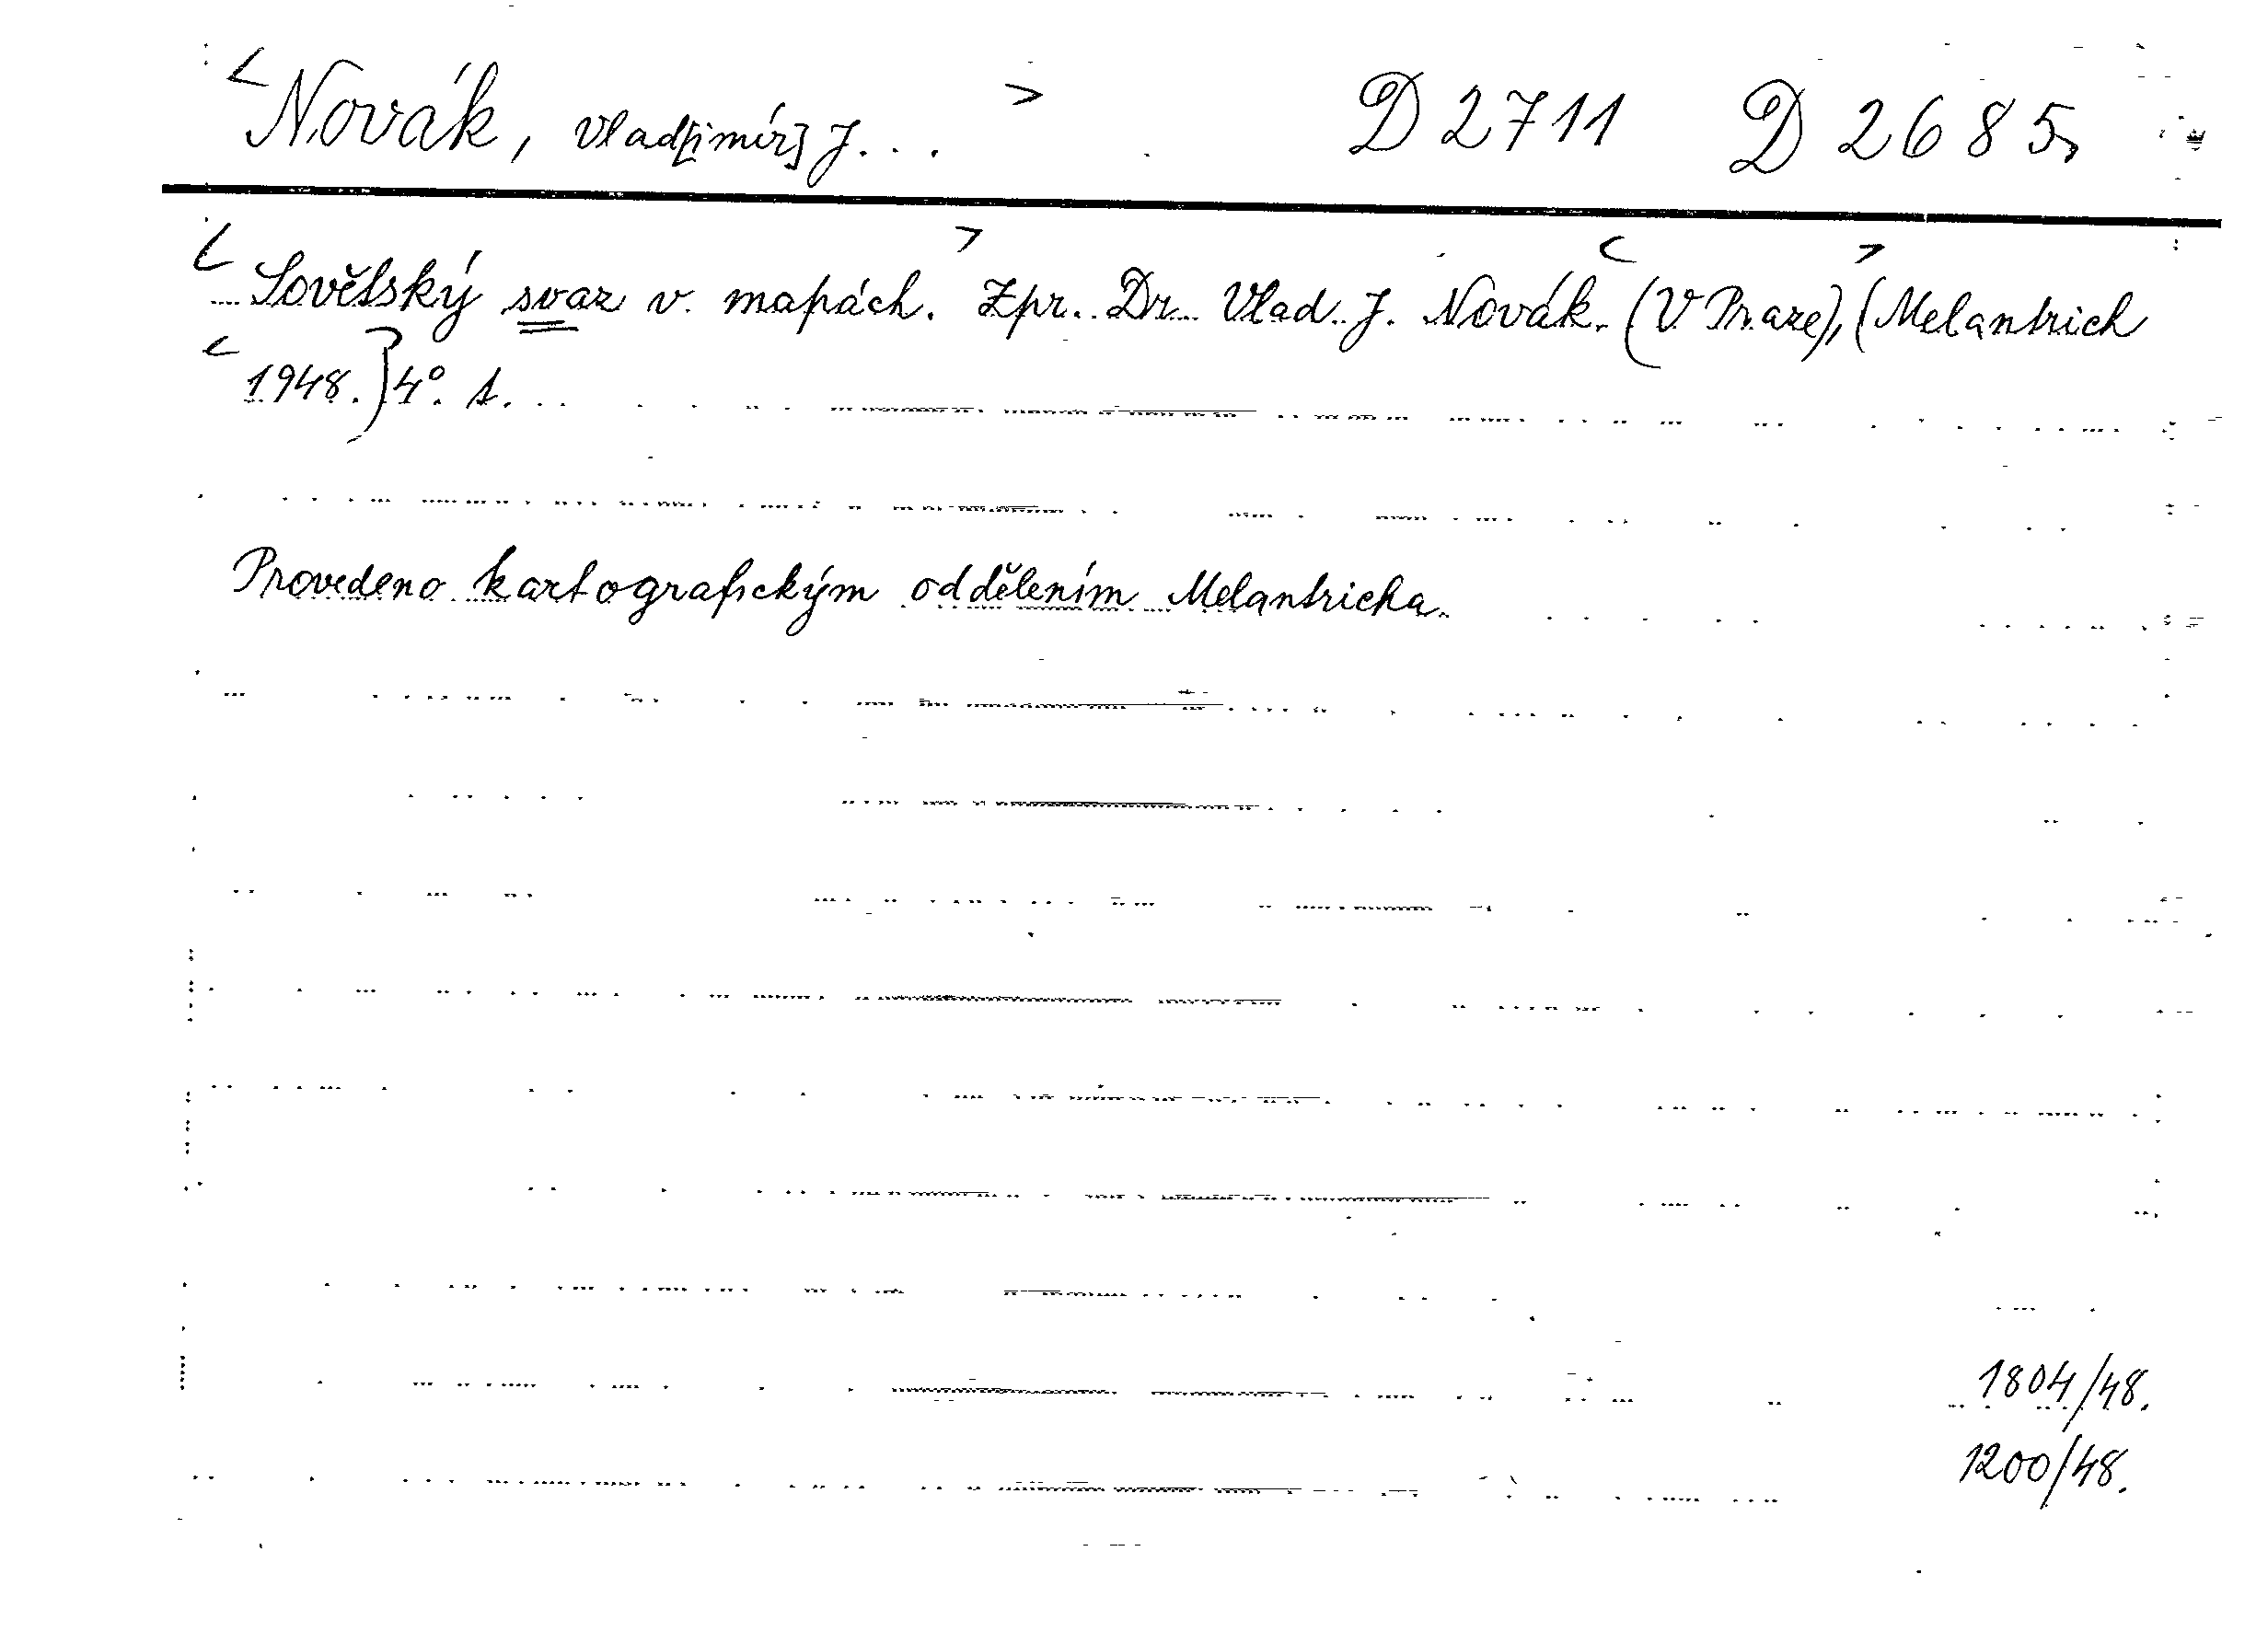 <Novák, Vlad[imír] J...> D 2711 D 2685,
<Sovětský svaz v mapách.> Zpr. Dr. Vlad. J. Novák. <(V Praze),> (Melantrich
<1948.) 4°. s...
Provedeno kartografickým oddělením Melantricha.
1804/48.
1200/48.